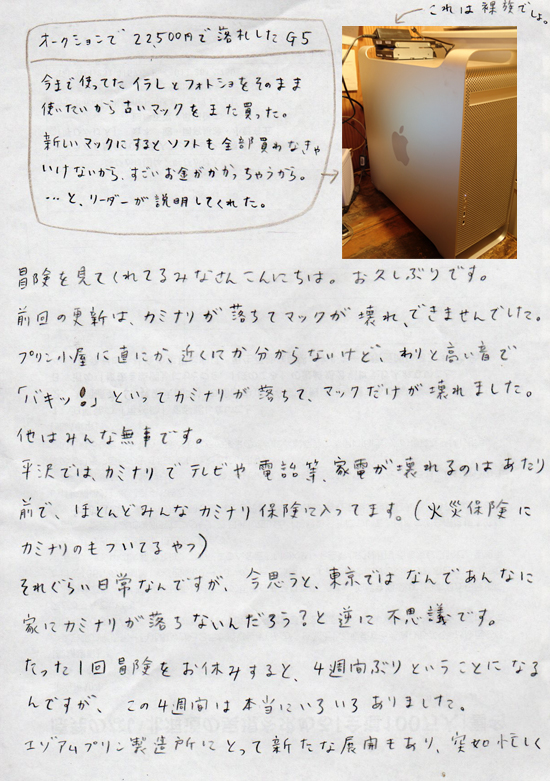 これは裸族でしょ。
オークションで22,500円で落札したG5
今まで使ってたイラレとフォトショをそのまま
使いたいから古いマックをまた買った。
新しいマックにするとソフトも全部買わなきゃ
いけないから、すごいお金がかかっちゃうから。
…と、リーダーが説明してくれた。
冒険を見てくれてるみなさんこんにちは。お久しぶりです。
前回の更新は、カミナリが落ちてマックが壊れ、できませんでした。
プリン小屋に直にか、近くにか分からないけど、わりと高い音で
「バキッ!」といってカミナリが落ちて、マックだけが壊れました。
他はみんな無事です。
平沢では、カミナリでテレビや電話等、家電が壊れるのはあたり
前で、ほとんどみんなカミナリ保険に入ってます。(火災保険に
カミナリのもついてるやつ)
それぐらい日常なんですが、今思うと、東京ではなんであんなに
家にカミナリが落ちないんだろう?と逆に不思議です。
たった1回冒険をお休みすると、4週間ぶりということになる
んですが、この4週間は本当にいろいろありました。
エゾアムプリン製造所にとって新たな展開もあり、突如忙しく